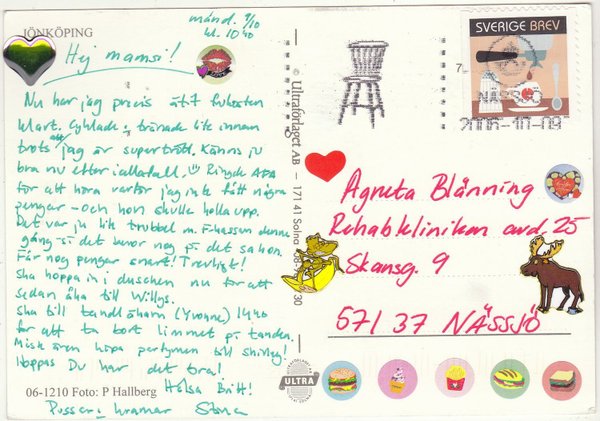 JÖNKÖPING
månd. 9/10
kl. 10 40
Hej mamsi!
Nu har jag precis ätit frukosten
klart. Cyklade, tränade lite innan
trots att jag är supertrött. Känns ju
bra nu efter iallafall. Ringde AEA
för att höra varför jag inte fått några
pengar - och hon skulle kolla upp.
Det var ju lite trubbel m. F-kassan denna
gång så det beror nog på det sa hon.
Får nog pengar snart! Trevligt!
Ska hoppa in i duschen nu för att
sedan åka till Willys.
Ska till tandläkarn (Yvonne) 14 40
för att ta bort limmet på tanden.
Måste även köpa parfymen till Shirley!
Hoppas Du har det bra!
Hälsa Britt!
Pussar & kramar
06-1210 Foto: P Hallberg
© Ultraförlaget AB – 171 41 Solna
ULTRA
SVERIGE BREV
2006-10-09
Agneta Blänning
Rehabkliniken avd. 25
Skansg. 9
571 37 NÄSSJÖ